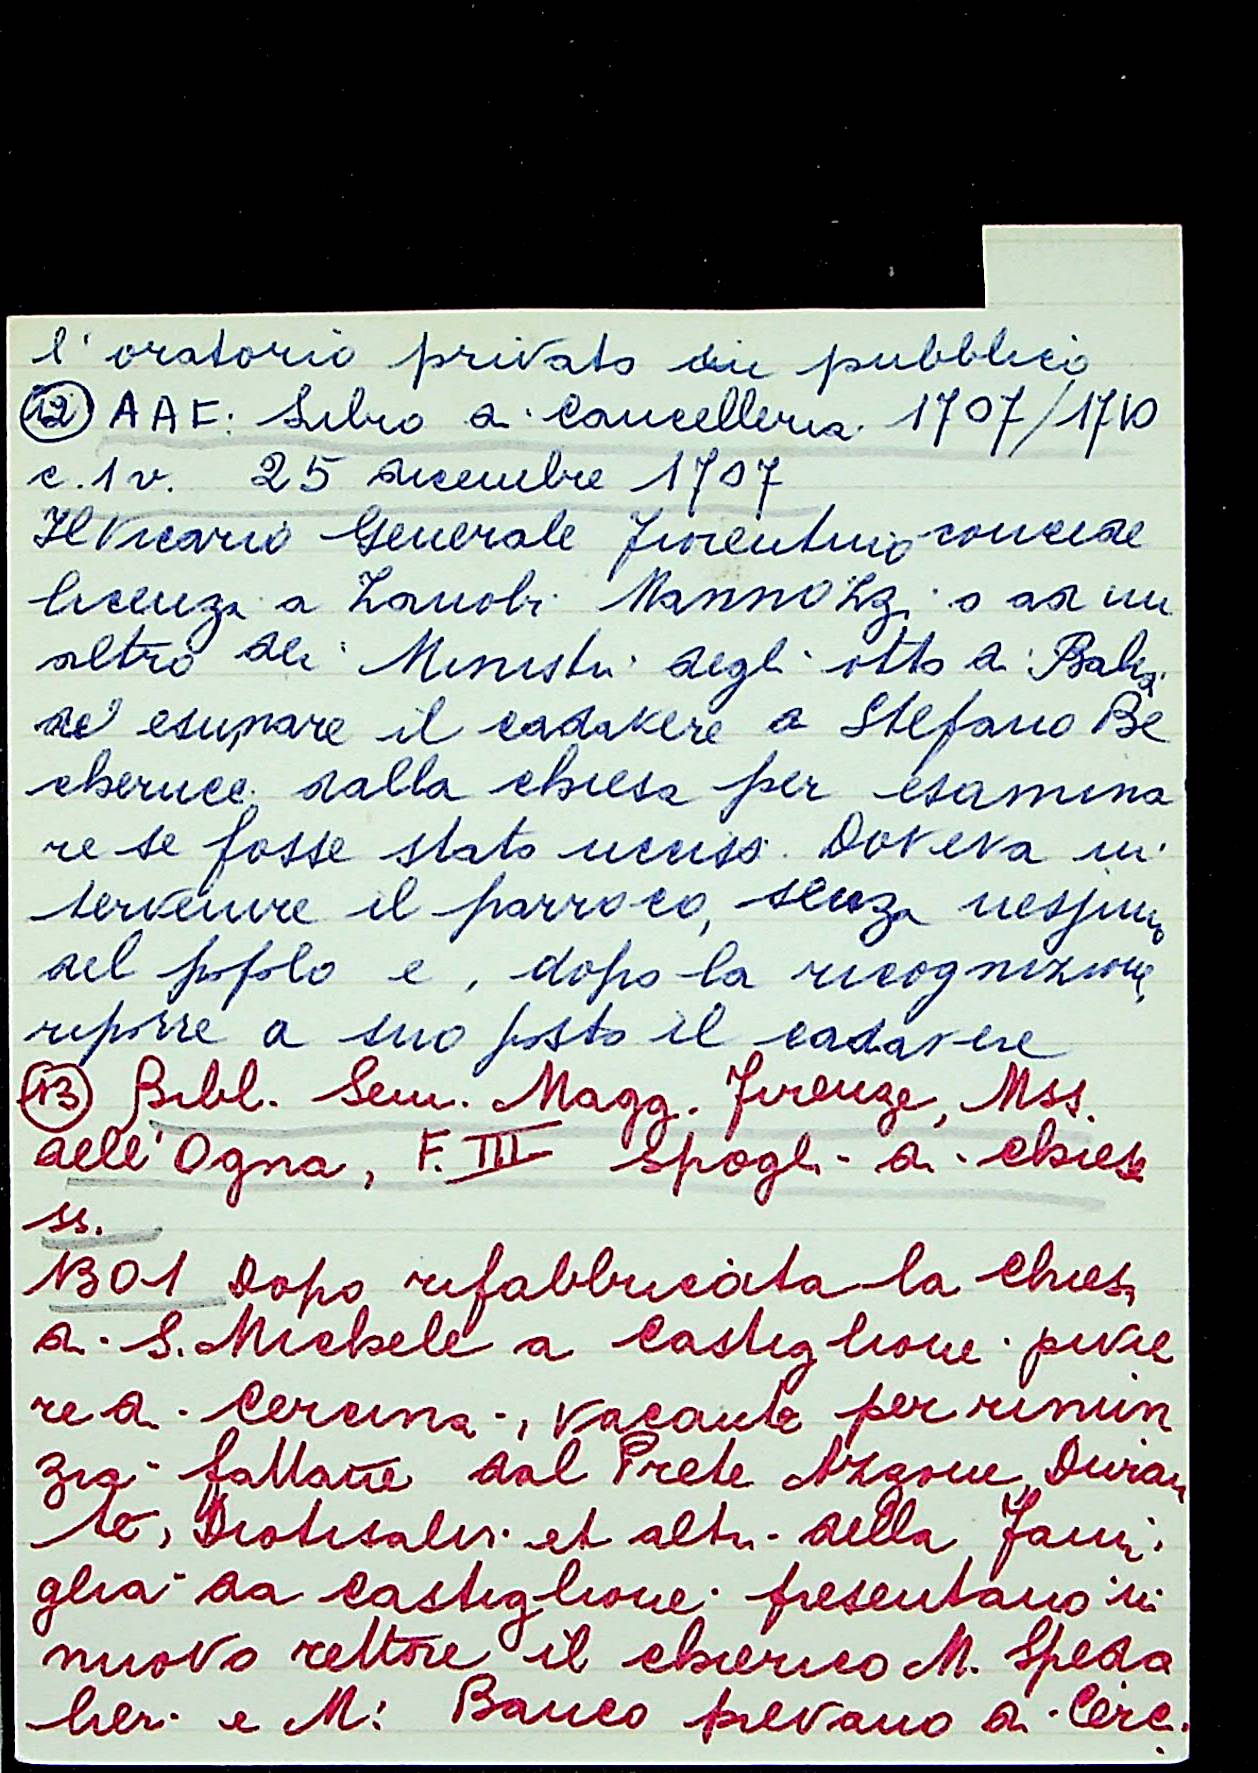 l'oratorio privato in pubblico
12) AAF: Libro di Cancelleria 1707/1710
c. 1 v. 25 dicembre 1707
Il Vicario Generale Fiorentino concede
licenza a Zanobi Mannozzi o ad un
altro dei Ministri degli otto di Balia
di esumare il cadavere a Stefano Be
cherucci dalla chiesa per esamina
re se fosse stato ucciso. Doveva in
tervenire il parroco, senza nessuno
del popolo e, dopo la ricognizione,
riporre a suo posto il cadavere
13) Bibl. Sem. Magg. Firenze, Mss.
dell'Ogna, F. III Spogli di chiese
ss.
1301 Dopo rifabbricata la chiesa
di S. Michele a Castiglione pivie
re di Cercina, vacante per rinun
zia fattane dal Prete Azzone, Duran
te, Diotisalvi et altri della Fami
glia da Castiglione presentano in
nuovo rettore il chierico M. Speda
lieri e M: Banco pievano di Cerc.